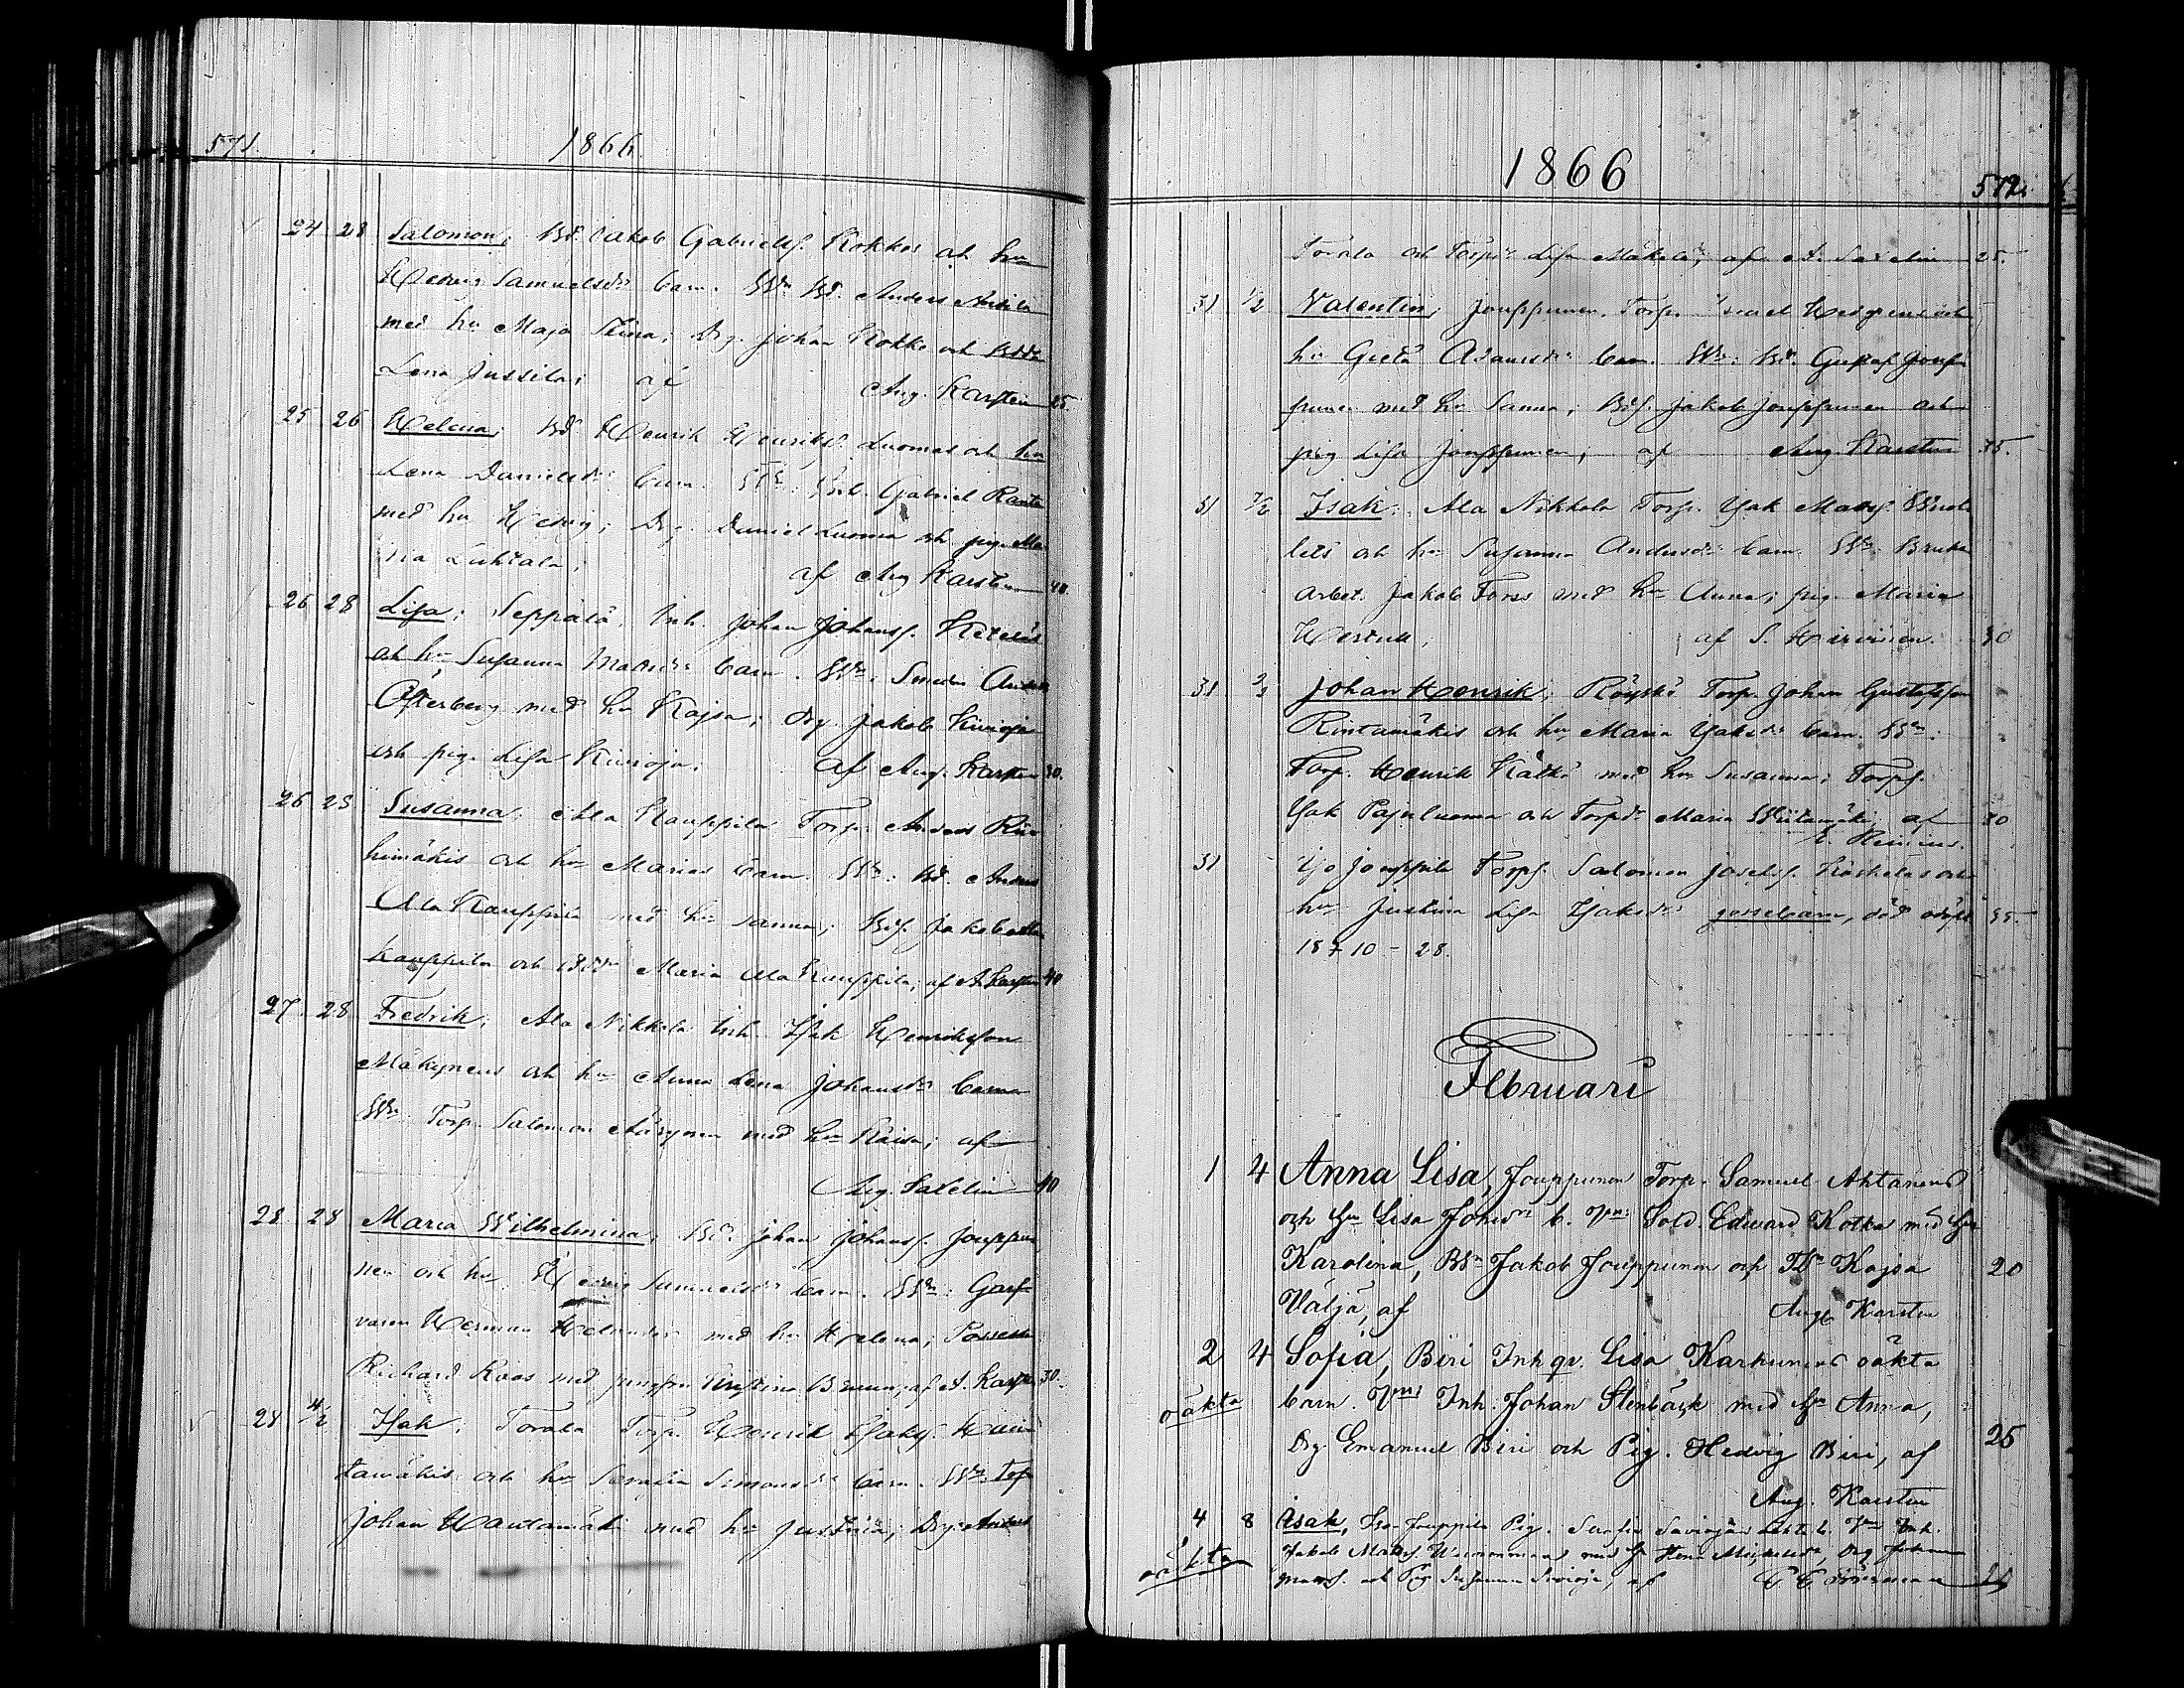 571. 1866.
24 28 Salomon; Bd. Jakob Gabrielss. Kokkos och hu
Hedvig Samuelsdr barn. Wn: Bd. Anders Anttila
med hu Maja Stina; Drg. Johan Kokko och Bddr
Lena Jussila; af Aug. Karsten 25.
25 26 Helena; Bd Henrik Henrikss. Luomas och hu
Lena Danielsdr barn. Wn: Gabriel Ranta
med hu Hedvig; Drg. Daniel Luoma och pig. Ma-
ria Luhtala; af Aug Karsten 40.
26 28 Lisa; Seppälä Inh. Johan Johanss.
och hu Susanna Mattsdr barn. Wn: Smeden Anders
Österberg med hu Kajsa; Drg. Jakob Kivioja
och pig. Lisa Kivioja; af Aug. Karsten 30.
26 28 Susanna; Ala Kauppila Torp. Anders Rii-
himäkis och hu Marias barn. Wn: Bd. Anders
Ala Kauppila med hu Sanna; Bds. Jakob Ala
Kauppila och Bddr Maria Ala Kauppila, af A. Karsten 40
27 28 Fredrik; Ala Nikkola Inh. Isak Henriksson
Mäkynens och hu Anna Lena Johansdr barn
Wn Torp. Salomon med hu Kaisa; af
Aug. Savelin 40
28 28 Maria Wilhelmina; Bd. Johan Johanss. Jouppu-
nen och hu Hedvig Samuelsdr barn. Wn: Garf-
varen Herman Helander med hu Helena;
Richard Roos med jungfru Kristina af A. Karsten 30.
28 4/2 Isak; Torala Torp. Henrik Isakss. Hau-
tamäkis och hu Serafia Simonsdr barn. Wn: Torp
Johan Hautamäki med hu Justina; Drg: Anders
1866 572.
Torala och Torpdr Lisa Mäkelä; af A. Savelin 25.
31 1/2 Valentin; Jouppunen, Torp. Israel Hedgrens och
hu Greta Adamsdr barn. Wn: Bd. Gustaf Joup-
punen med hu Sanna; Bds. Jakob Jouppunen och
pig Lisa Jouppunen, af Aug. Karsten 35.
31 7/2 Isak; Ala Nikkola Torp. Isak Matts.
och hu Susanna Andersdr barn Wn: Bruks
arbet. Jakob Forss med hu Anna; pig. Maria
af S. Hirvinen. 30
31 2/2 Johan Henrik; Röyskö Torp. Johan Gustafsson
Rintamäkis och hu Maria Isaksdr barn. Wn:
Torp. Henrik Kätkä med hu Susanna; Torps.
Isak Pajuluoma och Torpdr Maria Wiitamäki; af 30
E. Heinius.
31 Iso Jouppila Torps. Salomon Josefss. och
hu Justina Lisa Isaksdr gossebarn, död odöpt 35.
18 10 – 28.
Februari
1 4 Anna Lisa, Jouppunen Torp. Samuel Ahtanens
och hu Lisa Johsdr b. Vn: Sold. Edward Kotka med hu
Karolina, Bdn Jakob Jouppunen och Tdr Kajsa 20
Väljä, af Aug Karsten
2 4 Sofia, Biri Inhqv. Lisa Karhunens oäkta
oäkta barn. Vn: Inh. Johan Stenbäck med hu Anna,
Drg. Emanuel Biri och Pig. Hedvig Biri, af 25
Aug. Karsten
4 8 Isak, Iso-Jouppila Pig. Serafia Saviojas b. Vn Inh.
oäkta Jakob Matts. med hu Drg Johan
och Pig Susanna af